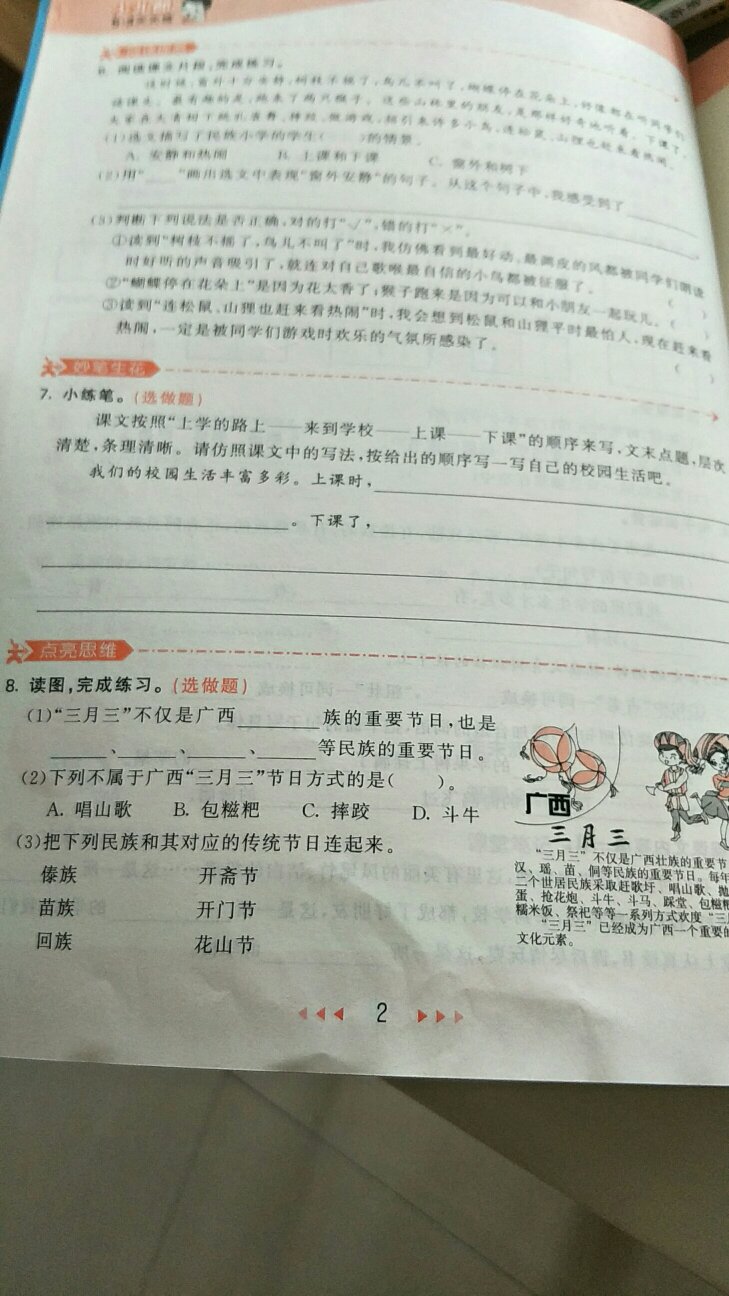 6. 阅读课文片段,完成练习。
这时候,窗外十分安静,树枝不摇了,鸟儿不叫了,蝴蝶停在花朵上,好像都在听同学们
读课文。最有趣的是,跑来了两只猴子。这些山林里的朋友,是那样好奇地听着。下课了,
大家在大青树下跳孔雀舞、摔跤、做游戏,招引来许多小鸟,连松鼠、山狸也赶来看热闹。
(1)选文描写了民族小学的学生( )的情景。
A. 安静和热闹 B. 上课和下课 C. 窗外和树下
(2)用“____”画出选文中表现“窗外安静”的句子。从这个句子中,我感受到了
(3)判断下列说法是否正确,对的打“√”,错的打“×”。
①读到“树枝不摇了,鸟儿不叫了”时,我仿佛看到最好动、最调皮的风都被同学们朗读
时好听的声音吸引了,就连对自己歌喉最自信的小鸟都被征服了。 ( )
②“蝴蝶停在花朵上”是因为花太香了;猴子跑来是因为可以和小朋友一起玩儿。( )
③读到“连松鼠、山狸也赶来看热闹”时,我会想到松鼠和山狸平时最怕人,现在赶来看
热闹,一定是被同学们游戏时欢乐的气氛所感染了。 ( )
妙笔生花
7. 小练笔。(选做题)
课文按照“上学的路上——来到学校——上课——下课”的顺序来写,文末点题,层次
清楚,条理清晰。请仿照课文中的写法,按给出的顺序写一写自己的校园生活吧。
我们的校园生活丰富多彩。上课时,
。下课了,
点亮思维
8. 读图,完成练习。(选做题)
(1)“三月三”不仅是广西______族的重要节日,也是
____、____、____、____等民族的重要节日。
(2)下列不属于广西“三月三”节日方式的是( )。
A. 唱山歌 B. 包糍粑 C. 摔跤 D. 斗牛
(3)把下列民族和其对应的传统节日连起来。
傣族 开斋节
苗族 开门节
回族 花山节
广西
三月三
“三月三”不仅是广西壮族的重要节
汉、瑶、苗、侗等民族的重要节日。每年
二个世居民族采取赶歌圩、唱山歌、抛
蛋、抢花炮、斗牛、斗马、踩堂、包糍粑
糯米饭、祭祀等等一系列方式欢度“三
“三月三”已经成为广西一个重要的
文化元素。
2